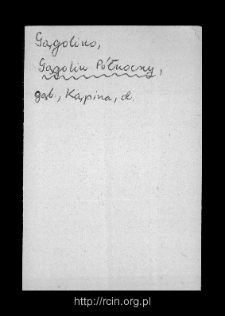 Gągolino,
Gągolin Północny,
gąb, Kąpina, d.
http://rcin.org.pl